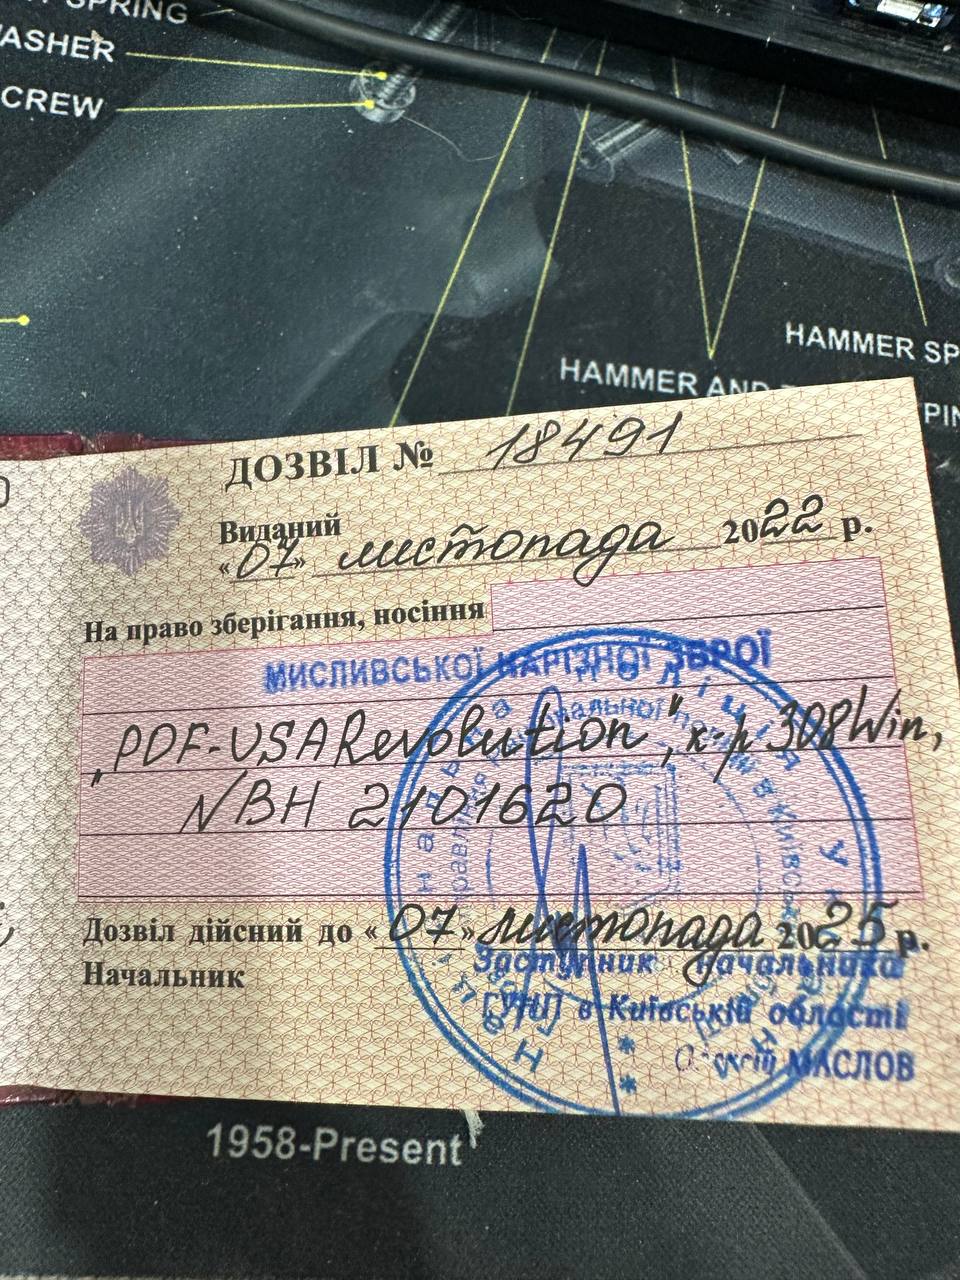 SPRING
WASHER
CREW
HAMMER SP
HAMMER AND
PIN
ДОЗВІЛ № 18491
Виданий
«07» листопада 2022 р.
На право зберігання, носіння
МИСЛИВСЬКОЇ НАРІЗНОЇ ЗБРОЇ
„PDF-USA Revolution", к-р 308Win,
№ВН 2101620
Дозвіл дійсний до «07» листопада 2025 р.
Начальник
Заступник начальника
ГУНП в Київській області
МАСЛОВ
1958-Present